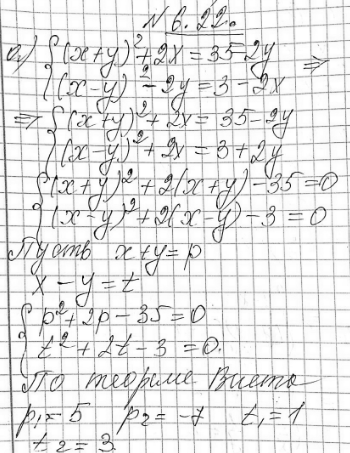 № 6.22.
а) { (x+y)² + 2x = 35 - 2y
{ (x-y)² - 2y = 3 - 2x ⇒
⇒ { (x+y)² + 2x = 35 - 2y
{ (x-y)² + 2x = 3 + 2y
{ (x+y)² + 2(x+y) - 35 = 0
{ (x-y)² + 2(x-y) - 3 = 0
Пусть x+y = p
x - y = t
{ p² + 2p - 35 = 0
{ t² + 2t - 3 = 0.
По теореме Виета
p₁ = 5 p₂ = -7 t₁ = 1
t₂ = 3